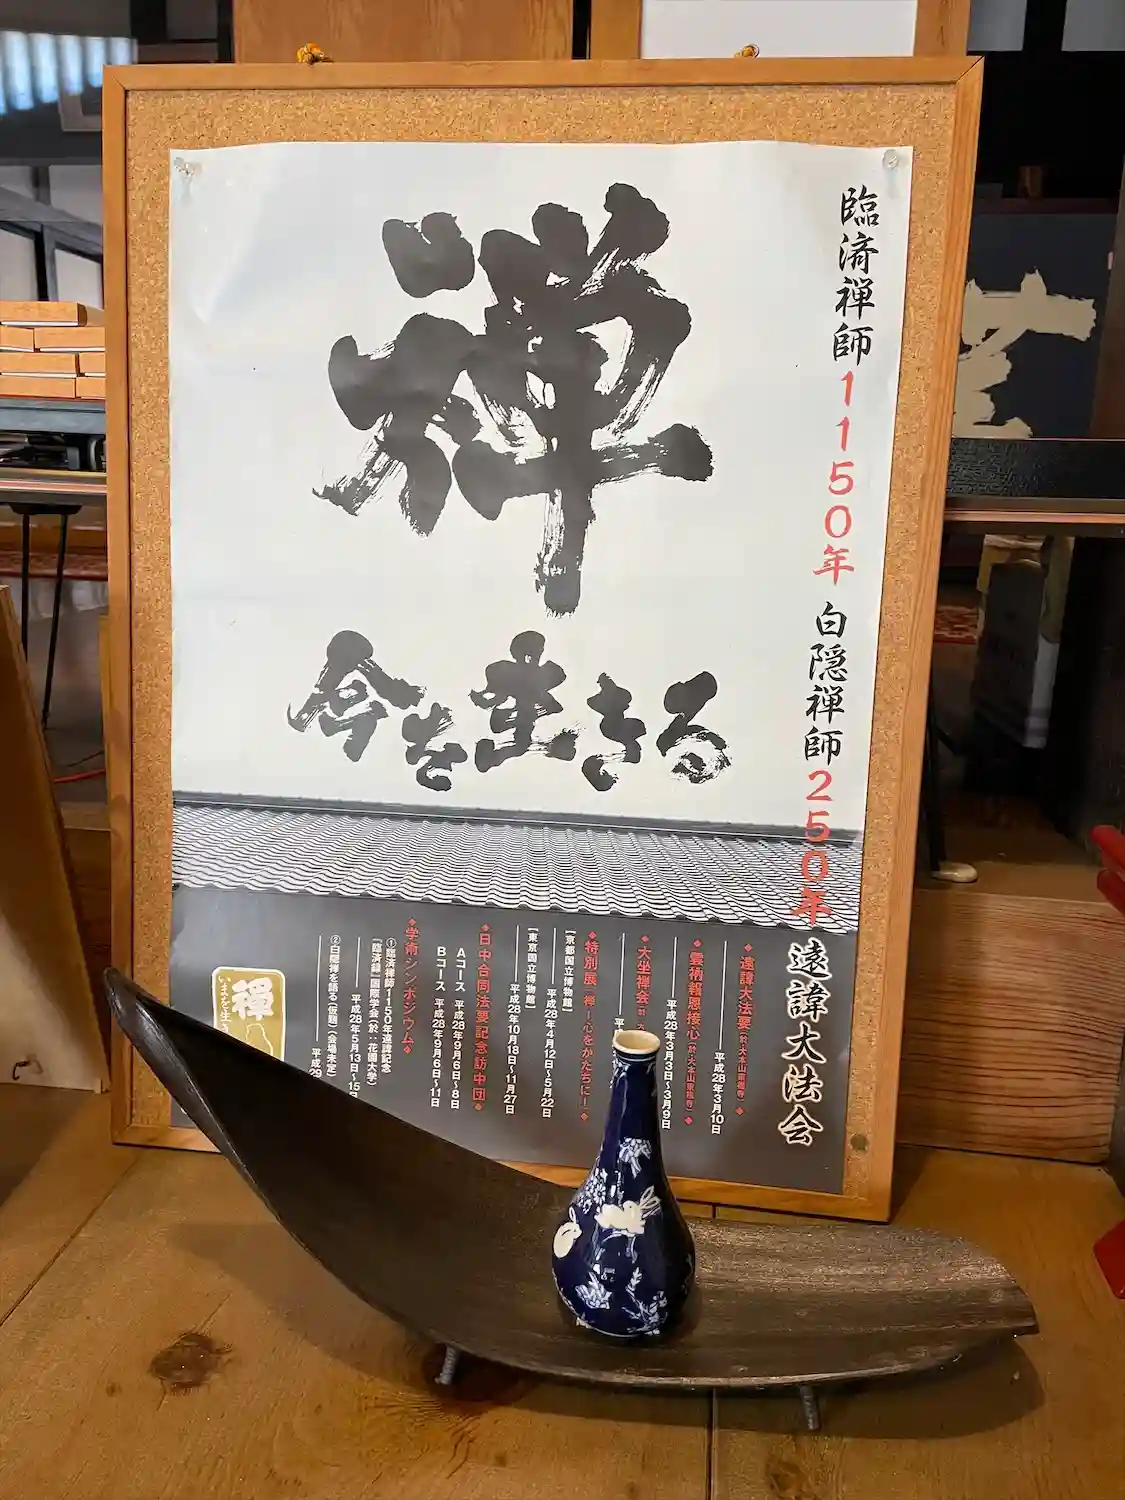 禅
今を生きる
臨済禅師1150年 白隠禅師250年 遠諱大法会
◆遠諱大法要(於:大本山東福寺)◆
平成28年3月10日
◆雲栖報恩接心(於:大本山東福寺)◆
平成28年3月3日〜3月9日
◆大坐禅会(於:大
◆特別展「禅―心をかたちに―」◆
[京都国立博物館]
平成28年4月12日〜5月22日
[東京国立博物館]
平成28年10月18日〜11月27日
◆日中合同法要記念訪中団◆
Aコース 平成28年9月6日〜8日
Bコース 平成28年9月6日〜11日
◆学術シンポジウム◆
①臨済禅師1150年遠諱記念
『臨済録』国際学会(於:花園大学)
平成28年5月13日〜15日
②白隠禅を語る(仮題)(会場未定)
平成29
禪
いまを生き